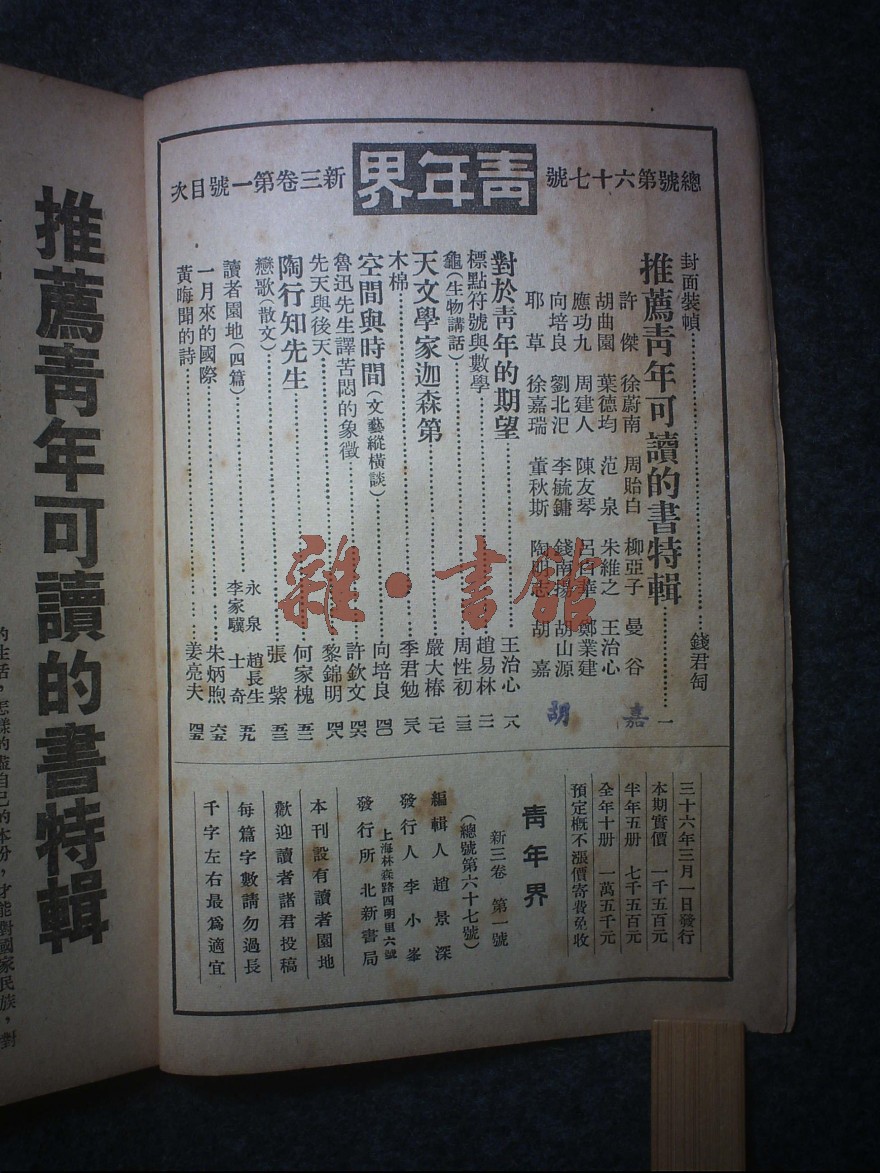 總號第六十七號 青年界 新三卷第一號目次
封面裝幀 錢君匋
推薦青年可讀的書特輯 一
許傑 徐蔚南 周貽白 柳亞子 曼谷
胡曲園 葉德均 范泉 朱維之 王治心
應功九 周建人 陳友琴 呂白華 鄭業建
向培良 劉北汜 李毓鏞 錢南揚 胡山源
耶草 徐嘉瑞 董秋斯 陶明志 胡嘉
胡嘉
對於青年的期望 王治心 一八
標點符號與數學 趙易林 二一
龜(生物講話) 周性初 二三
天文學家迦森第 嚴大椿 二七
木棉 季君勉 三八
空間與時間(文藝縱橫談) 向培良 四〇
魯迅先生譯苦悶的象徵 許欽文 四六
先天與後天 黎錦明 四八
陶行知先生 何家槐 五一
戀歌(散文) 張紫 五三
讀者園地(四篇) 永泉 趙長生 李家驥 士奇 五九
一月來的國際 朱炳煦 六五
黃晦聞的詩 姜亮夫 四五
三十六年三月一日發行
本期實價 一千五百元
半年五册 七千五百元
全年十册 一萬五千元
預定概不漲價寄費免收
青年界
新三卷 第一號
(總號第六十七號)
編輯人 趙景深
發行人 李小峯
上海林森路四明里六號
發行所 北新書局
本刊設有讀者園地
歡迎讀者諸君投稿
每篇字數請勿過長
千字左右最爲適宜
推薦青年可讀的書特輯
的生活,怎樣的盡自己的本分,才能對國家民族,對
雜·書館